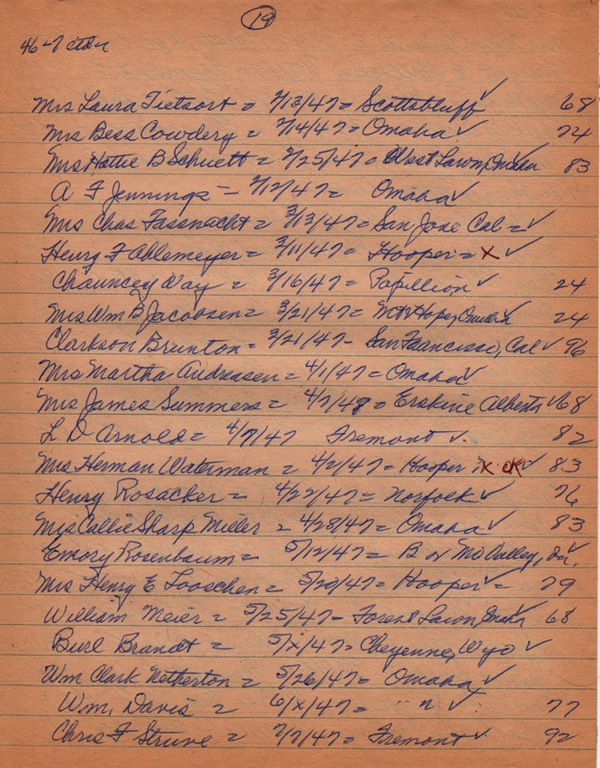 19
46-7
Mrs Laura Tietsort = 2/13/47 = Scottsbluff ✓ 68
Mrs Bess Cowdery = 2/14/47 = Omaha ✓ 74
Mrs Hattie B Schuett = 2/25/47 = West Lawn, Omaha 83
A F Jennings - 2/12/47 = Omaha ✓
Mrs Chas Fassnacht = 3/13/47 = San Jose Cal = ✓
Henry F Ahlemeyer = 3/11/47 = Hooper = x ✓
Chauncey Way = 3/16/47 = Papillion ✓ 24
Mrs Wm B Jacobsen = 3/21/47 = Mt Hope, Omaha ✓ 24
Clarkson Brunton = 3/21/47 - San Francisco, Cal ✓ 96
Mrs Martha Andreasen = 4/1/47 = Omaha ✓
Mrs James Summers = 4/7/48 = Erskine Alberta ✓ 68
L D Arnold = 4/7/47 Fremont ✓. 82
Mrs Herman Waterman = 4/2/47 = Hooper x ok ✓ 83
Henry Rosacker = 4/22/47 = Norfolk ✓ 76
Mrs Callie Sharp Miller = 4/28/47 = Omaha ✓ 83
Emory Rosenbaum = 5/12/47 = B
Mrs Henry E Looschen = 5/20/47 = Hooper ✓ = 79
William Meier = 5/25/47 - Forest Lawn, Omaha ✓ 68
Burl Brandt = 5/x/47 = Cheyenne, Wyo ✓
Wm Clark Netherton = 5/26/47 = Omaha ✓
Wm, Davis = 6/x/47 = " " ✓ 77
Chris F Struve = 7/7/47 = Fremont ✓ 92